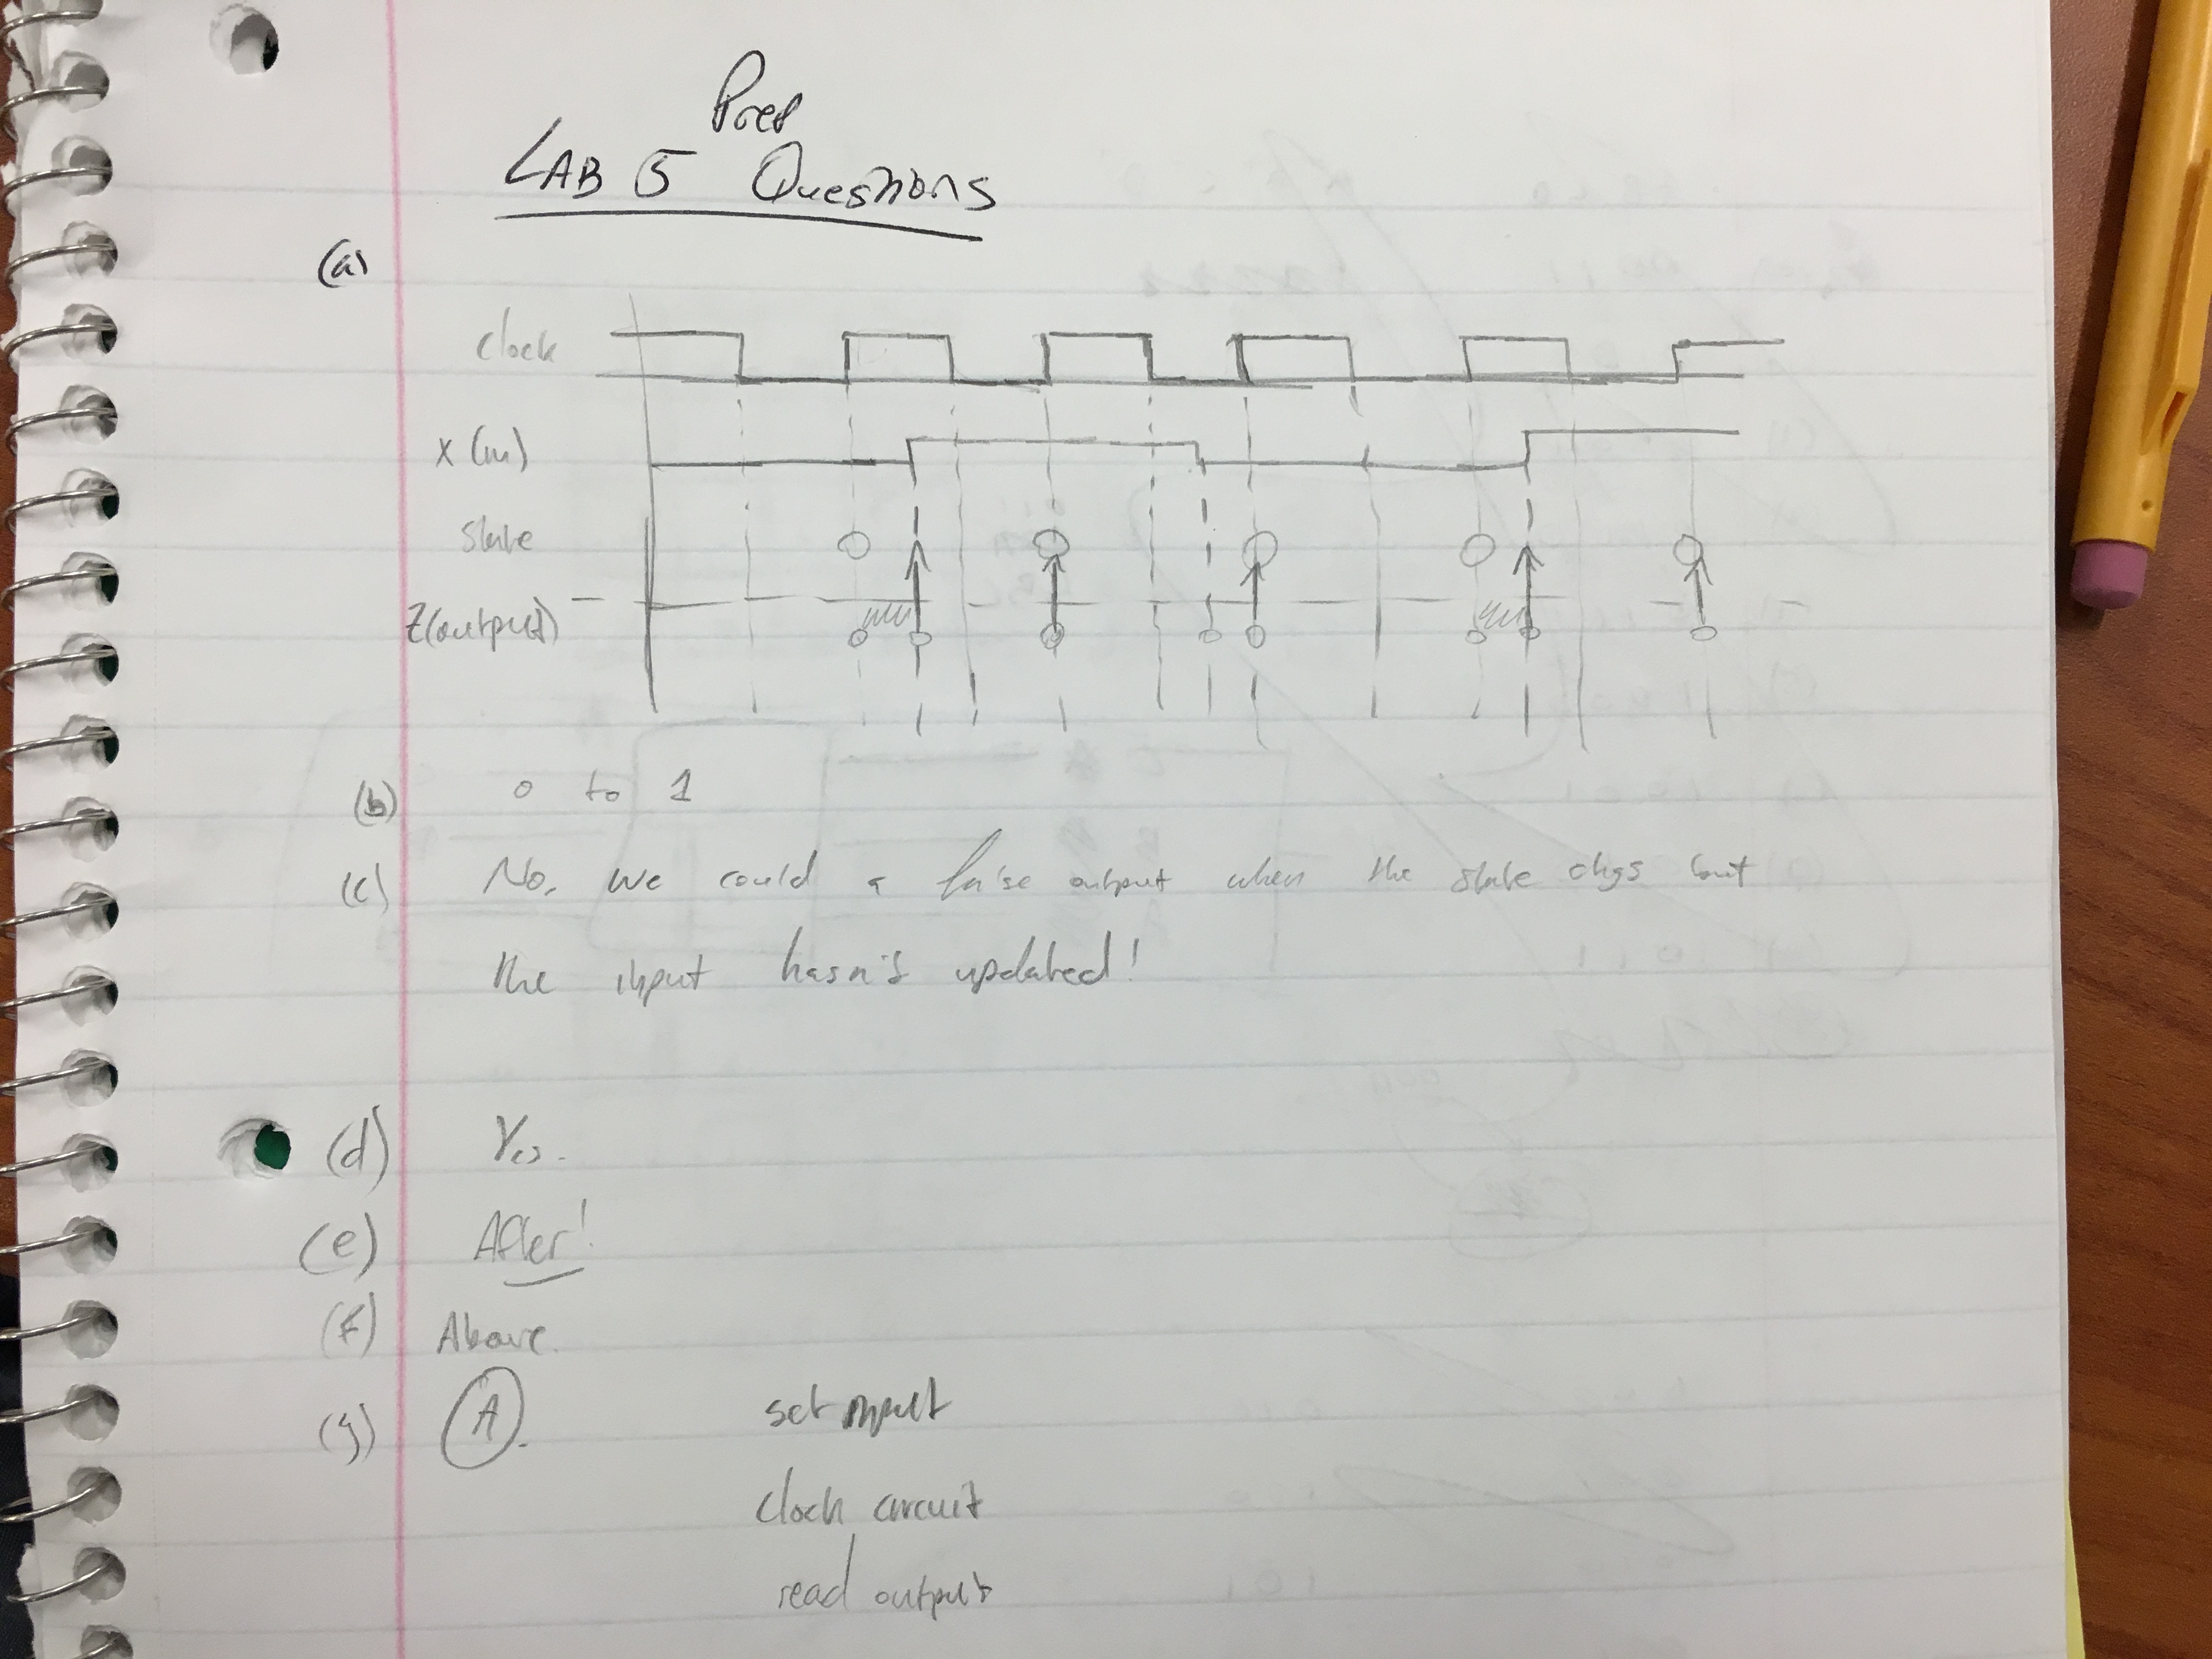 LAB 5 Prep Questions
(a)
clock
x(in)
state
z(output)
(b) 0 to 1
(c) No, we could a false output when the state chgs but
the input hasn't updated!
(d) Yes.
(e) After!
(f) Above.
(g) A.
set input
clock circuit
read output